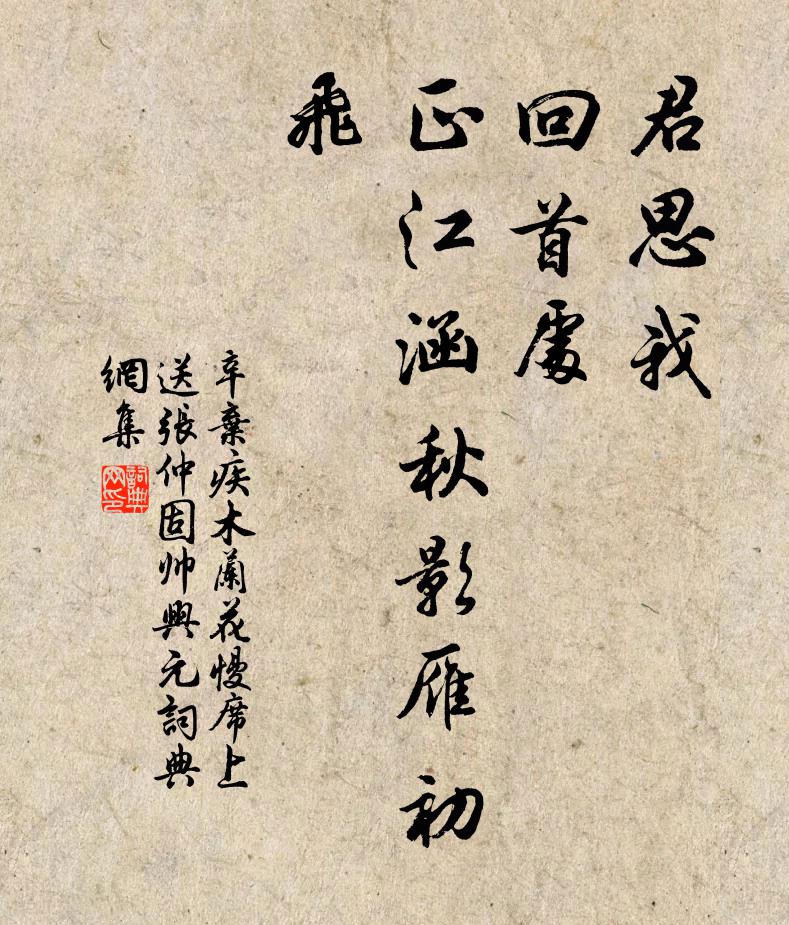 君思我
回首處
正江涵秋影雁初
飛
辛棄疾木蘭花慢席上
送張仲固帅興元詞典
網集
詞典
网印